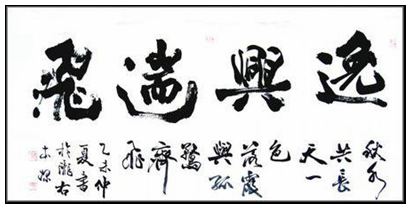 逸興遄飛
秋水
共長
天一
色
落霞
與孤
鶩
齊
飛
乙未仲
夏書
於隴右